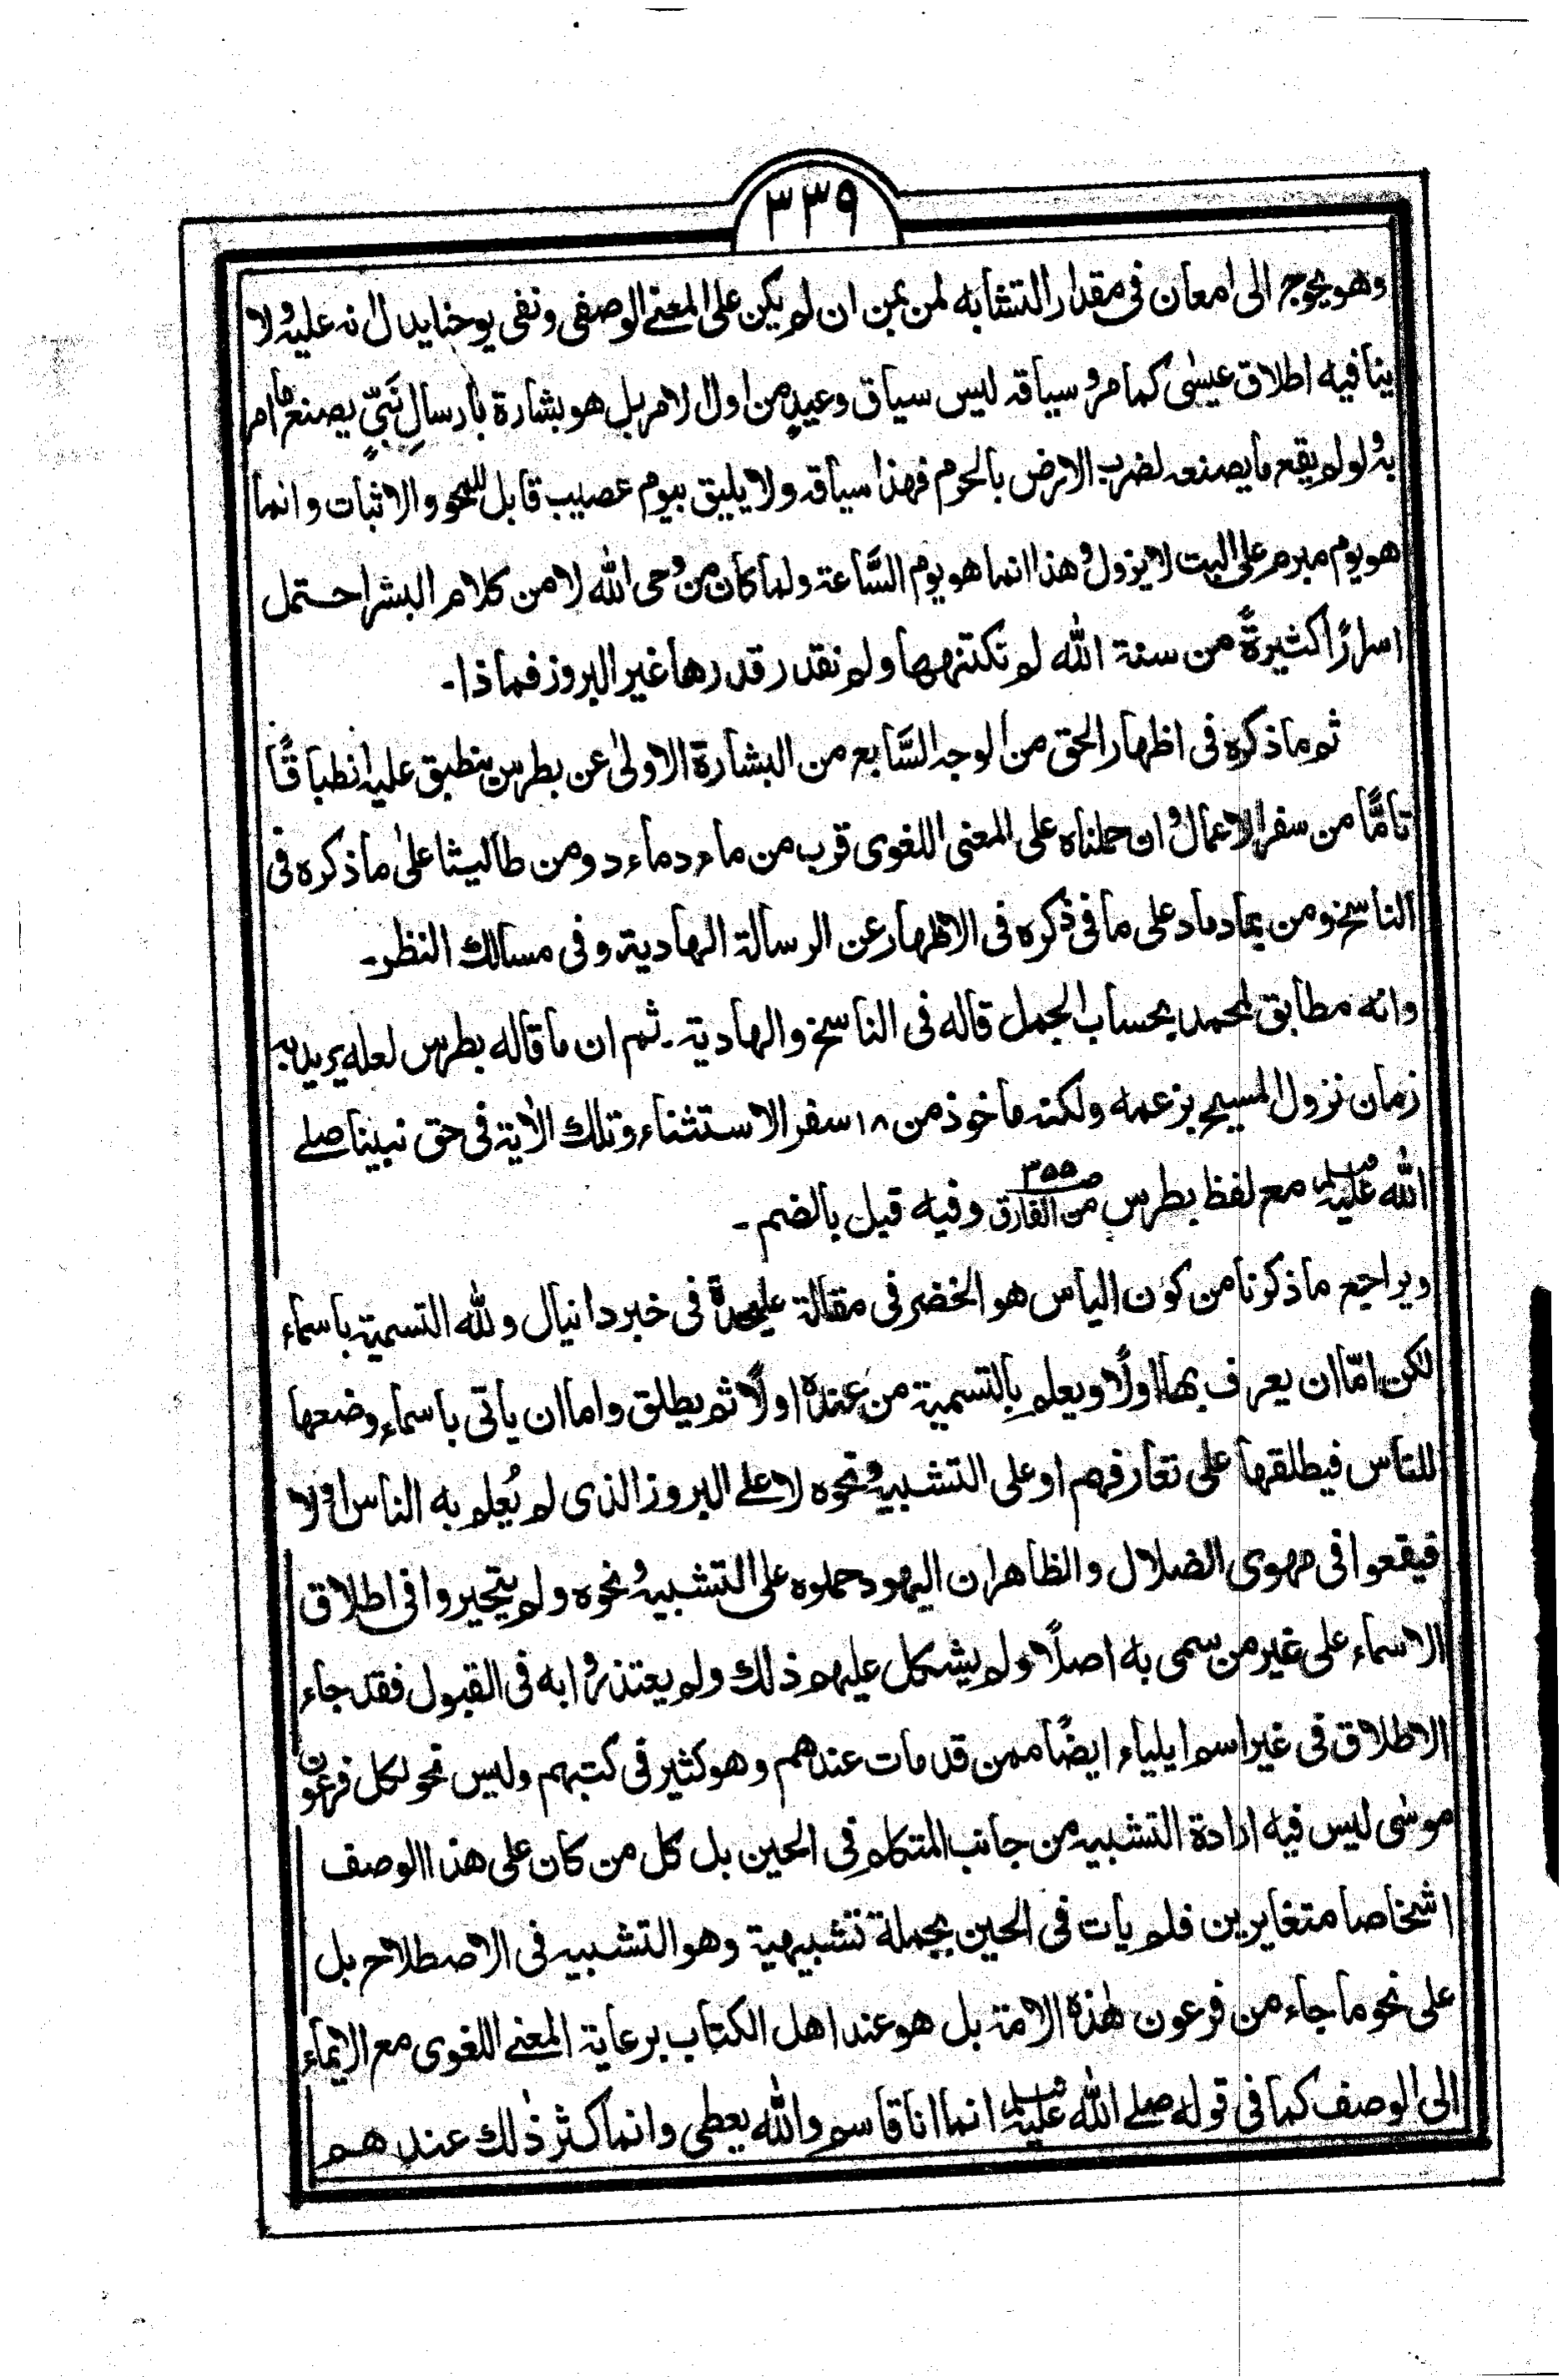 ٣٣٩
وهو يحوج الى امعان فى مقدار التشابه لمن بمن ان لم يكن على المعنى الوصفى ونفى يوحنا يدل انه عليه ولا
ينافيه اطلاق عيسٰى كما مر وسياقه ليس سياق وعيدٍ من اول الامر بل هو بشارة بارسالِ نَبِيٍّ يصنع ما امر
به ولو لم يقع ما يصنعه لضرب الارض بالحرم فهذا سياقه ولا يليق بيوم عصيب قابل للمحو والاثبات وانما
هو يوم مبرم على البت لا يزول وهذا انما هو يوم السَّاعة ولما كان من وحى الله لا من كلام البشر احتمل
اسرارًا كثيرةً من سنة الله لم نكتنهها ولم نقدر قدرها غير البروز فماذا۔
ثم ما ذكره فى اظهار الحق من الوجه السَّابع من البشارة الاولىٰ عن بطرس ينطبق عليه انطباقًا
تامًّا من سفر الاعمال وان حملناه على المعنى اللغوى قرب من ماء دماء د ومن طاليثا علىٰ ما ذكره فى
الناسخ ومن بماد ماد على ما فى ذكره فى الاظهار عن الرسالة الهادية وفى مسالك النظر۔
وانه مطابق لمحمد بحساب الجمل قاله فى الناسخ والهادية۔ ثم ان ما قاله بطرس لعله يريد به
زمان نزول المسيح بزعمه ولكنه ماخوذ من ١٨ سفر الاستثناء وتلك الاٰية فى حق نبينا صلے
الله عليه وسلم مع لفظ بطرس ص ٣٥٥ من الفارق وفيه قيل بالضم۔
ويراجع ما ذكرنا من كون الياس هو الخضر فى مقالة عليحدة فى خبر دانيال ولله التسمية باسماء
لكن امّا ان يعرف بها اولًا ويعلم بالتسمية من عنده اولًا ثم يطلق واما ان ياتى باسماءٍ وضعها
للناس فيطلقها على تعارفهم او على التشبيه ونحوه لا علے البروز الذى لم يُعلم به الناس اولا
فيقعوا فى مهوى الضلال والظاهر ان اليهود حملوه على التشبيه ونحوه ولم يتحيروا فى اطلاق
الاسماء على غير من سمى به اصلًا ولم يشكل عليهم ذلك ولم يعتذروا به فى القبول فقد جاء
الاطلاق فى غير اسم ايلياء ايضًا ممن قد مات عندهم وهو كثير فى كتبهم وليس نحو لكل فرعون
موسٰى ليس فيه ارادة التشبيه من جانب المتكلم فى الحين بل كل من كان على هذا الوصف
اشخاصا متغايرين فلم يات فى الحين بجملة تشبيهية وهو التشبيه فى الاصطلاح بل
على نحو ما جاء من فرعون لهٰذه الامة بل هو عند اهل الكتاب برعاية المعنے اللغوى مع الايماء
الى الوصف كما فى قوله صلے الله عليه وسلم انما انا قاسم والله يعطى وانما كثر ذٰلك عندهم